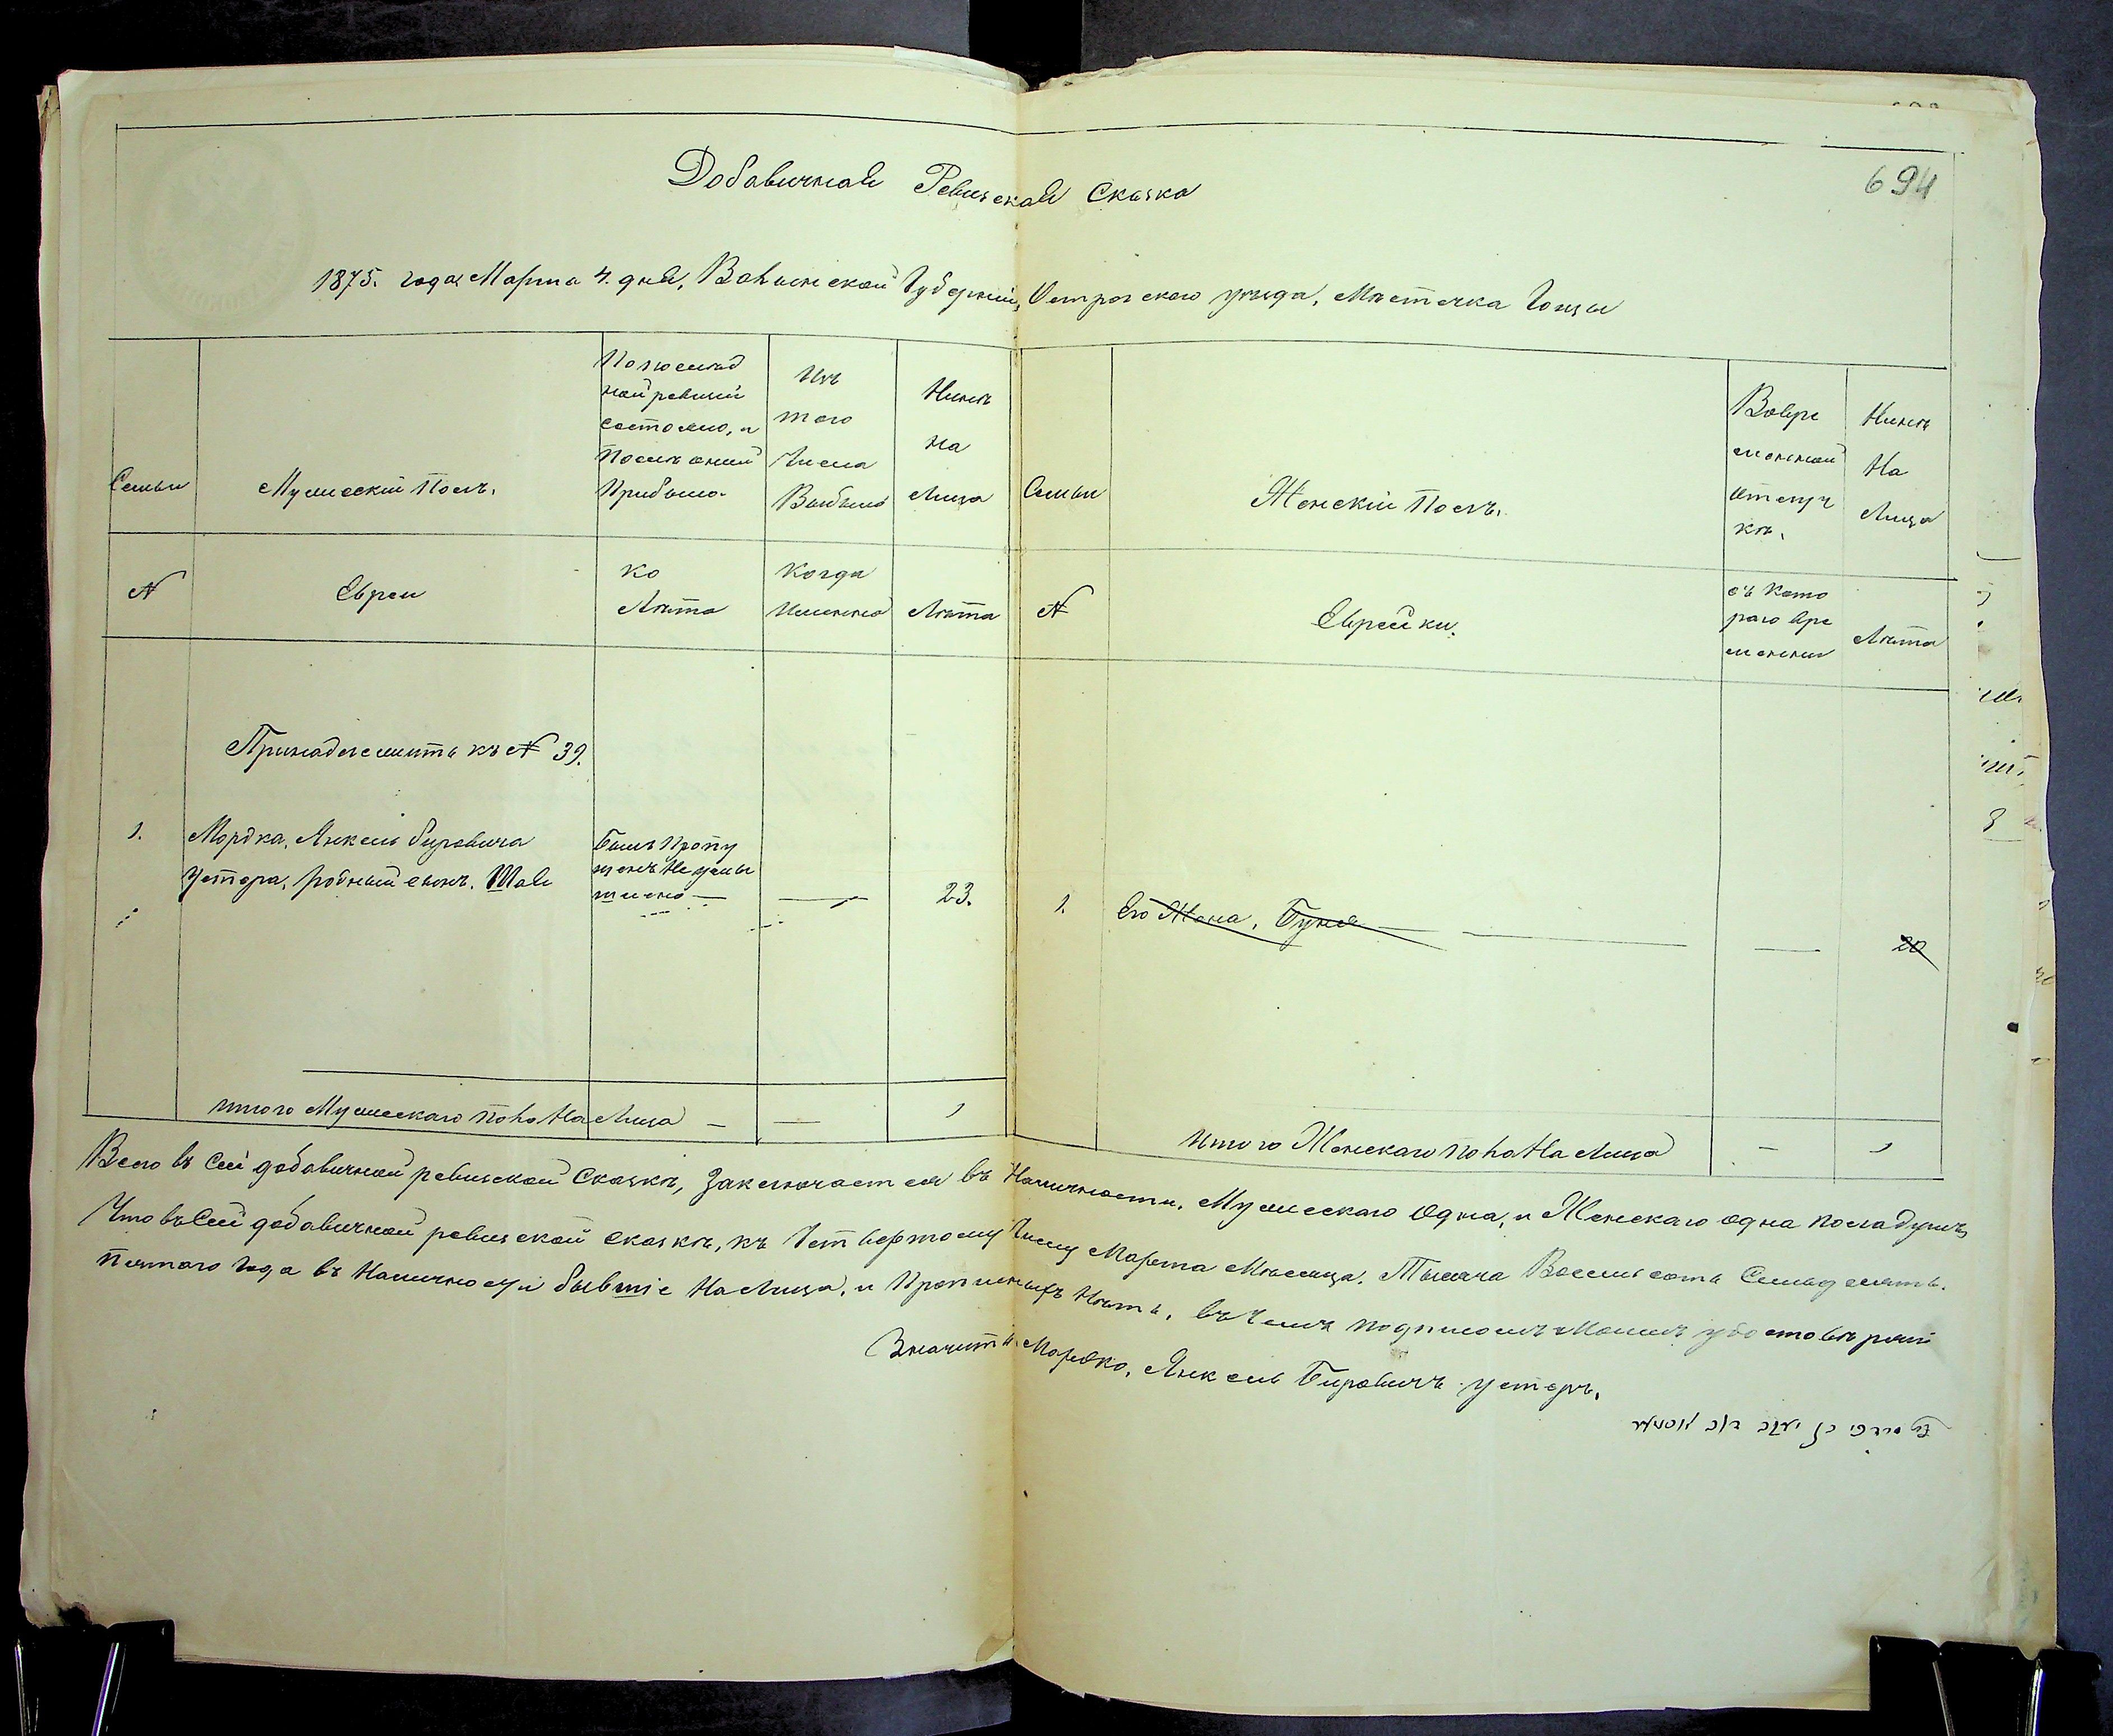 694
Добавичная Ревизская Сказка
1875. года Марта 4. дня, Волынской Губернии, Острогского уѣзда, Мѣстечка Гощи
Семьи
Мужескій Полъ.
По послѣд
ней ревизіи
состояло, и
Послѣ оной
Прибыло
Изъ
того
Числа
Выбыло
Нынѣ
на
Лицо
Семьи
Женскій Полъ.
Вовре
менной
Отлуч
кѣ.
Нынѣ
На
Лицо
№
Евреи
ко
Лѣта
когда
именно
Лѣта
№
Еврейки.
съ кото
раго вре
мени
Лѣта
Принадлежитъ къ № 39.
1. Мордка, Янкель Бировича
Устера, родный сынъ. Шая
Былъ пропу
щенъ Неумы
шлено —
—
23.
1. Его Жена, Буня — — — 20
итого Мужескаго пола На Лицо — — 1
Итого Женскаго пола На Лицо — 1
Всего въ Сей добавичной ревизской Сказкѣ, Заключается въ Наличности, Мужескаго Одна, и Женскаго одна пола душъ,
Что въ Сей добавичной ревизской сказкѣ, къ Четвертому Числу Марта Мѣсяца. Тысяча Восемьсотъ Семьдесятъ.
Пятаго Года въ Наличности бывшіе На Лицо, и Прописныхъ Нѣтъ, въ чемъ подписомъ Моимъ удостовѣряю
Значитъ Мордко, Янкель Бировичъ Устеръ.